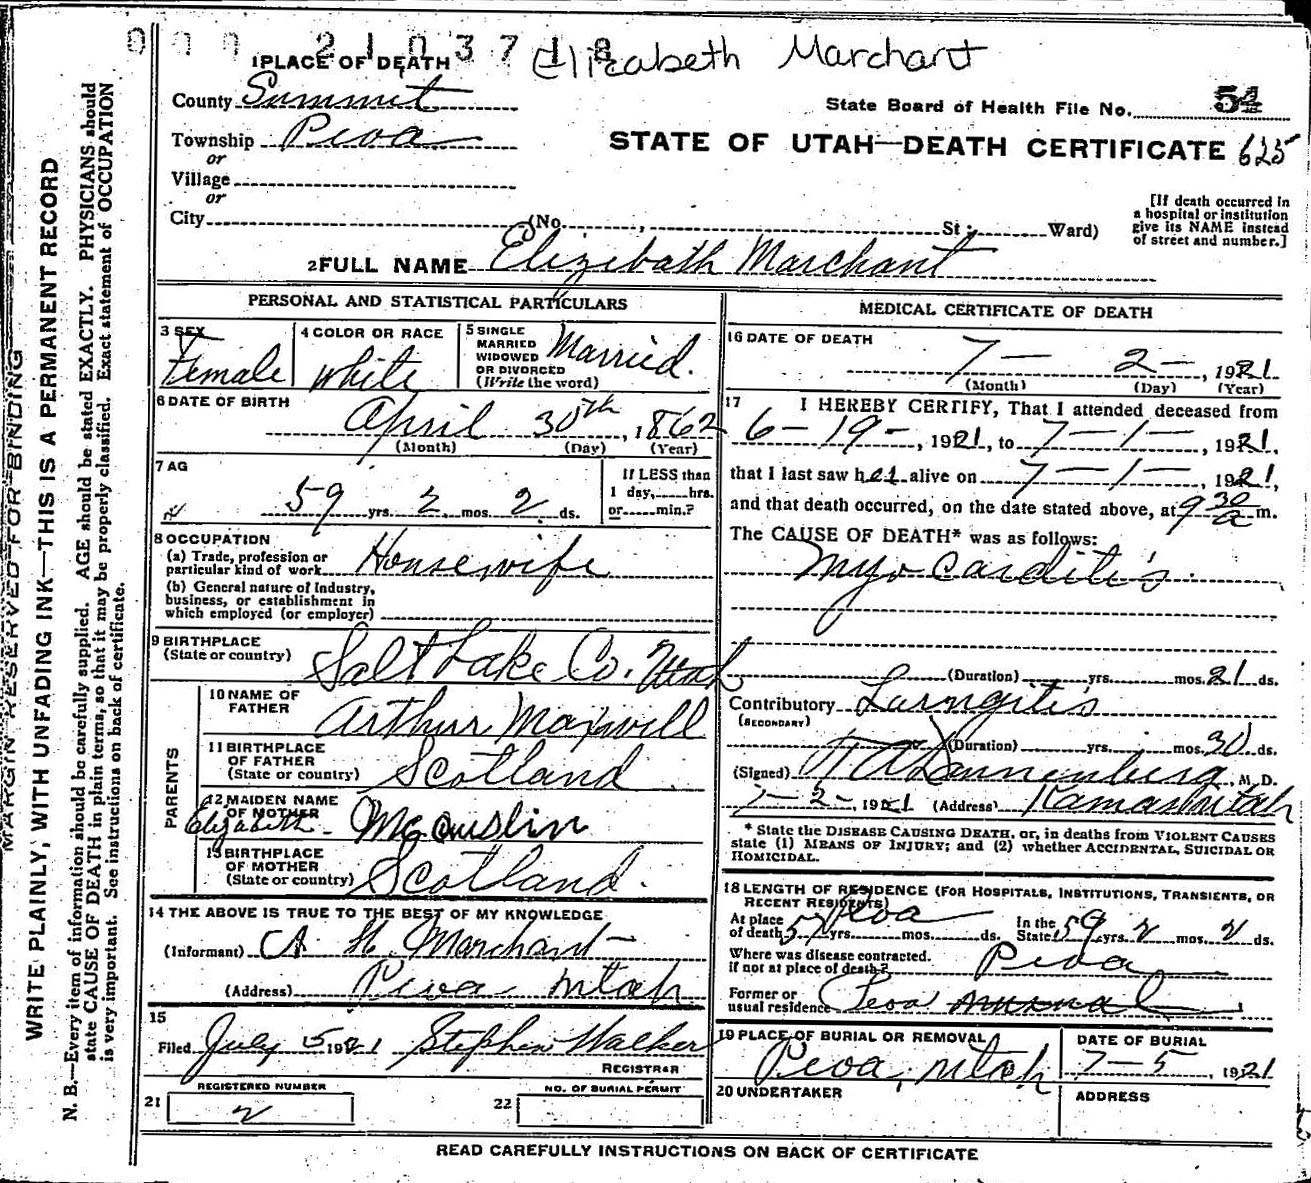 000 2103718
Elizabeth Marchant
1 PLACE OF DEATH
County Summit
State Board of Health File No. 54
Township Peoa
STATE OF UTAH—DEATH CERTIFICATE 625
or
Village
or
City (No. , St.; Ward)
[If death occurred in
a hospital or institution
give its NAME instead
of street and number.]
2 FULL NAME Elizibath Marchant
PERSONAL AND STATISTICAL PARTICULARS
3 SEX
Female
4 COLOR OR RACE
White
5 SINGLE
MARRIED
WIDOWED
OR DIVORCED
(Write the word)
Married.
6 DATE OF BIRTH
April 30th, 1862
(Month) (Day) (Year)
7 AG
59 yrs. 2 mos. 2 ds.
If LESS than
1 day, hrs.
or min.?
8 OCCUPATION
(a) Trade, profession or
particular kind of work Housewife
(b) General nature of industry,
business, or establishment in
which employed (or employer)
9 BIRTHPLACE
(State or country) Salt Lake Co. Utah
PARENTS
10 NAME OF
FATHER Arthur Maxwell
11 BIRTHPLACE
OF FATHER
(State or country) Scotland
12 MAIDEN NAME
OF MOTHER
Elizabeth Mcauslin
13 BIRTHPLACE
OF MOTHER
(State or country) Scotland.
14 THE ABOVE IS TRUE TO THE BEST OF MY KNOWLEDGE
(Informant) A H Marchant
(Address) Peoa Utah
15
Filed July 5 1921 Stephen Walker
REGISTRAR
REGISTERED NUMBER
21 2
NO. OF BURIAL PERMIT
22
MEDICAL CERTIFICATE OF DEATH
16 DATE OF DEATH
7 — 2 —, 1921
(Month) (Day) (Year)
17 I HEREBY CERTIFY, That I attended deceased from
6 — 19 —, 1921, to 7 — 1 —, 1921,
that I last saw her alive on 7 — 1 —, 1921,
and that death occurred, on the date stated above, at 9 30 a m.
The CAUSE OF DEATH* was as follows:
Myo Carditis.
(Duration) yrs. mos. 21 ds.
Contributory Larngitis
(SECONDARY)
(Duration) yrs. mos. 30 ds.
(Signed) Dannenburg M. D.
7 — 2 —, 1921 (Address) Kamas Utah
* State the DISEASE CAUSING DEATH, or, in deaths from VIOLENT CAUSES
state (1) MEANS OF INJURY; and (2) whether ACCIDENTAL, SUICIDAL OR
HOMICIDAL.
18 LENGTH OF RESIDENCE (FOR HOSPITALS, INSTITUTIONS, TRANSIENTS, OR
RECENT RESIDENTS)
Peoa
At place
of death yrs. mos. ds.
In the
State 59 yrs. 2 mos. 2 ds.
Where was disease contracted.
if not at place of death? Peoa
Former or
usual residence Peoa
19 PLACE OF BURIAL OR REMOVAL
Peoa, Utah
DATE OF BURIAL
7 — 5, 1921
20 UNDERTAKER
ADDRESS
READ CAREFULLY INSTRUCTIONS ON BACK OF CERTIFICATE
MARGIN RESERVED FOR BINDING
WRITE PLAINLY, WITH UNFADING INK—THIS IS A PERMANENT RECORD
N. B.—Every item of information should be carefully supplied. AGE should be stated EXACTLY. PHYSICIANS should
state CAUSE OF DEATH in plain terms, so that it may be properly classified. Exact statement of OCCUPATION
is very important. See instructions on back of certificate.